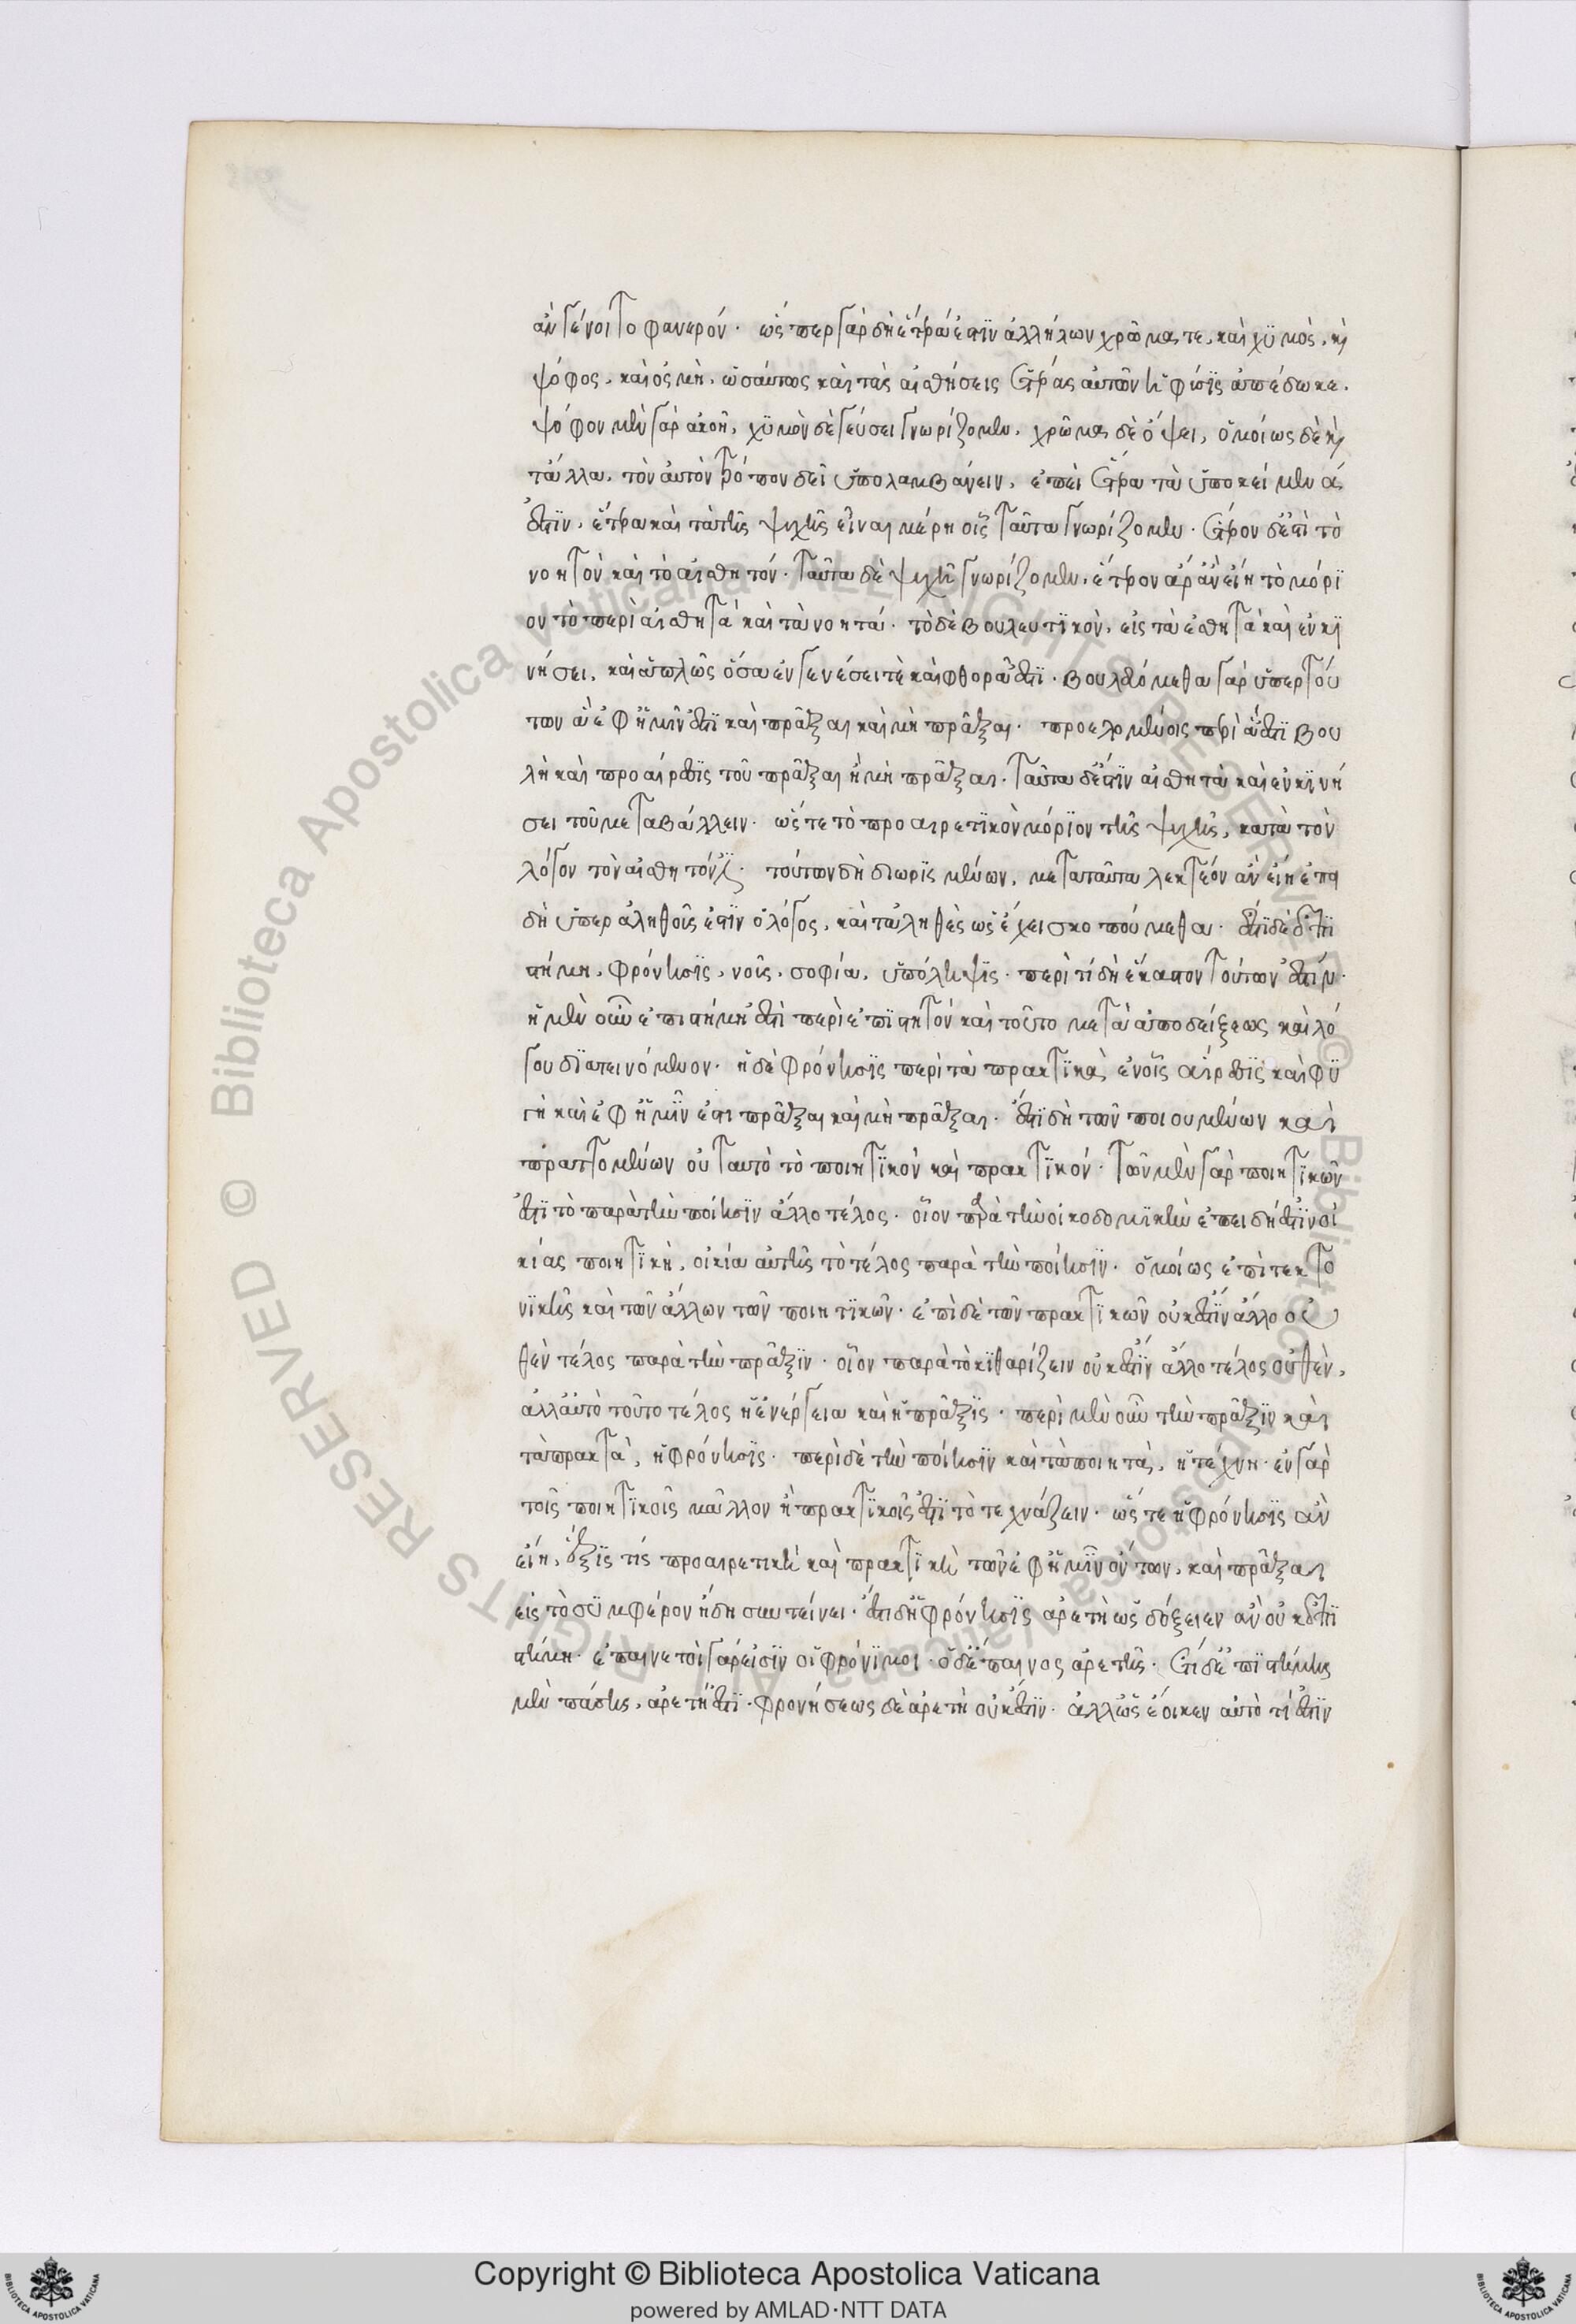 ἂν γένοιτο φανερόν. ὥσπερ γὰρ δὴ ἕτερά ἐστϊν ἀλλήλων χρῶμα τε, καὶ χϋμὸς, καὶ
ψόφος, καὶ ὀσμὴ, ὡσαύτως καὶ τὰς αἰσθήσεις ἑτέρας αὐτῶν ἡ φύσϊς ἀπέδωκε.
ψόφον μὲν γὰρ ἀκοῆ, χϋμὸν δὲ γεύσει γνωρίζομεν, χρῶμα δὲ ὄψει, ὁμοίως δὲ καὶ
τἄλλα, τὸν αὐτὸν τρόπον δεῖ ὑπολαμβάνειν, ἐπεὶ ἕτερα τὰ ὑποκείμενά
ἐστϊν, ἕτερα καὶ τὰ τῆς ψυχῆς εἶναι μέρη οἷς ταῦτα γνωρίζομεν. ἕτερον δέ ἐστὶ τὸ
νοητὸν καὶ τὸ αἰσθητόν. ταῦτα δὲ ψυχῆ γνωρίζομεν, ἕτερον ἄρ ἂν εἴη τὸ μόρϊ
ον τὸ περὶ αἰσθητὰ καὶ τὰ νοητά. τὸ δὲ βουλευτϊκὸν, εἰς τὰ ἐσθητὰ καὶ ἐν κϊ
νήσει, καὶ ἁπλῶς ὅσα ἐν γενέσει τὲ καὶ φθορᾶ ἐστϊ. βουλευόμεθα γὰρ ὑπερ τού
των ἃ ἐφ ἡμῖν ἐστϊ καὶ πρᾶξαι καὶ μὴ πρᾶξαι. προελομένοις περὶ ἅ ἐστϊ βου
λὴ καὶ προαίρεσϊς τοῦ πρᾶξαι ἢ μὴ πρᾶξαι. ταῦτα δέ ἐστϊν αἰσθητὰ καὶ ἐν κϊνή
σει τοῦ μεταβάλλειν. ὥστε τὸ προαιρετϊκὸν μόρϊον τῆς ψυχῆς, κατὰ τὸν
λόγον τὸν αἰσθητόν. τούτων δὴ διωρϊσμένων, μετα ταῦτα λεκτέον ἂν εἴη ἐπει
δὴ ὑπερ ἀληθοῦς ἐστϊν ὁ λόγος, καὶ τἀληθὲς ὡς ἔχει σκοπούμεθα. ἐστϊ δὲ ἐπϊ
στήμη, φρόνησϊς, νοῦς, σοφία, ὑπόληψϊς. περὶ τί δὴ ἕκαστον τούτων ἐστίν.
ἡ μὲν οὖν ἐπιστήμη ἐστὶ περὶ ἐπϊστητόν καὶ τοῦτο μετὰ ἀποδείξεως καὶ λό
γου δϊατεινόμενον. ἡ δὲ φρόνησϊς περὶ τὰ πρακτϊκὰ, ἐν οἷς αἵρεσϊς καὶ φϋ
γὴ καὶ ἐφ ἡμῖν ἐστι πρᾶξαι καὶ μὴ πρᾶξαι. ἔστϊ δὴ τῶν ποιουμένων καὶ
πραττομένων οὐ ταυτὸ τὸ ποιητϊκὸν καὶ πρακτϊκόν. τῶν μὲν γὰρ ποιητϊκῶν
ἐστϊ τὸ παρὰ τὴν ποίησϊν ἄλλο τέλος. οἷον παρὰ τὴν οἰκοδομϊκὴν ἐπειδή ἐστϊν οἰ
κίας ποιητϊκὴ, οἰκία αὐτῆς τὸ τέλος παρὰ τὴν ποίησϊν. ὁμοίως ἐπὶ τεκτο
νϊκῆς καὶ τῶν ἄλλων τῶν ποιητϊκῶν. ἐπὶ δὲ τῶν πρακτϊκῶν οὐκ ἔστϊν ἄλλο οὐ
θὲν τέλος παρὰ τὴν πρᾶξϊν. οἷον παρὰ τὸ κϊθαρίζειν οὐκ ἔστϊν ἄλλο τέλος οὐθὲν,
ἀλλ αὐτὸ τοῦτο τέλος ἡ ἐνέργεια καὶ ἡ πρᾶξϊς. περὶ μὲν οὖν τὴν πρᾶξϊν καὶ
τὰ πρακτὰ, ἡ φρόνησϊς. περὶ δὲ τὴν ποίησϊν καὶ τὰ ποιητὰ, ἡ τέχνη. ἐν γὰρ
τοῖς ποιητϊκοῖς μᾶλλον ἢ πρακτϊκοῖς ἐστϊ τὸ τεχνάζειν. ὥστε ἡ φρόνησϊς ἂν
εἴη, ἕξϊς τίς προαιρετικὴ καὶ πρακτϊκὴ τῶν ἐφ ἡμῖν ὄντων, καὶ πρᾶξαι
εἰς τὸ σϋμφέρον ἤδη συντείνει. ἔστι δ ἡ φρόνησϊς ἀρετὴ ὡς δόξειεν ἂν οὐκ ἐπϊ
στήμη. ἐπαινετοὶ γάρ εἰσϊν οἱ φρόνϊμοι. ὁ δ ἔπαινος ἀρετῆς. ἔτι δ ἐπϊστήμης
μὲν πάσης, ἀρετή ἐστϊ. φρονήσεως δὲ ἀρετὴ οὐκ ἔστϊν. ἀλλ ὡς ἔοικεν αὐτὸ τί ἐστϊν
Copyright © Biblioteca Apostolica Vaticana
powered by AMLAD·NTT DATA